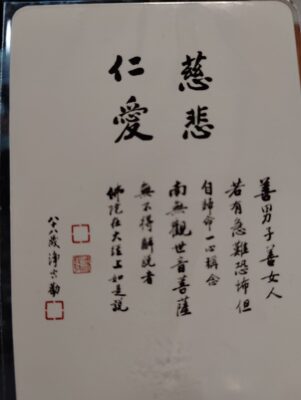 慈悲
仁愛
善男子善女人
若有急難恐怖但
自歸命一心稱念
南無觀世音菩薩
無不得解脫者
佛陀在大經上如是說
八十八歲淨空